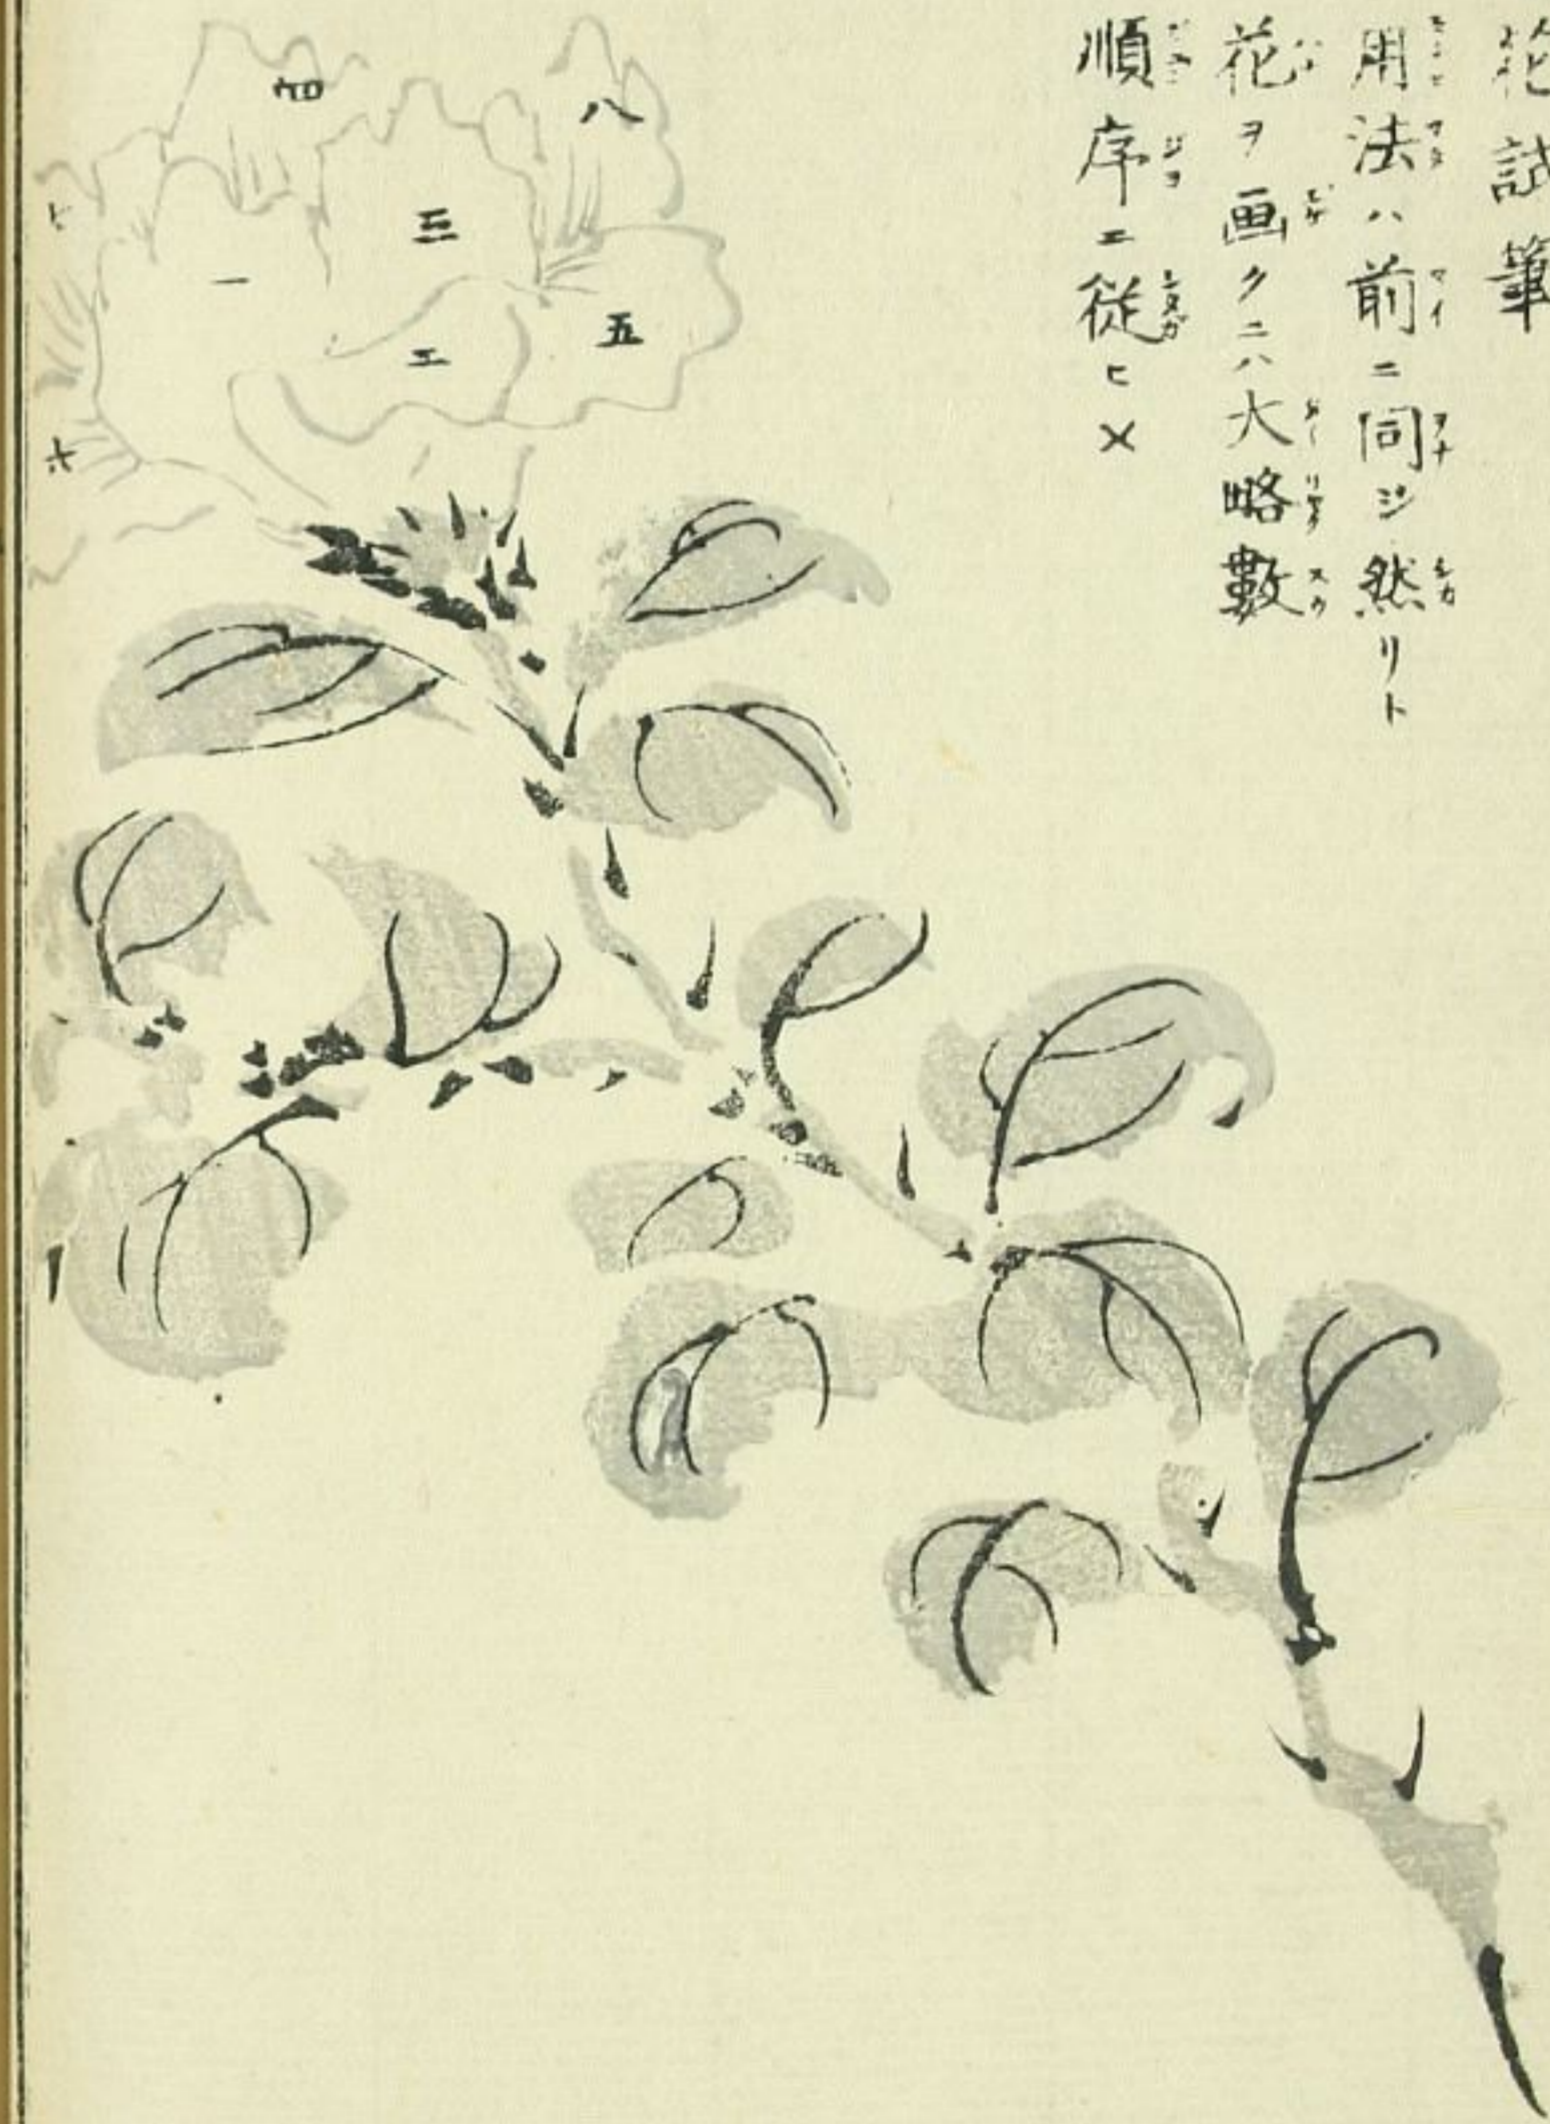 花試筆
用法ハ前ニ同ジ然リト
花ヲ画クニハ大略數
順序ニ従ヒ〆
八
三
一
五
二
六
七